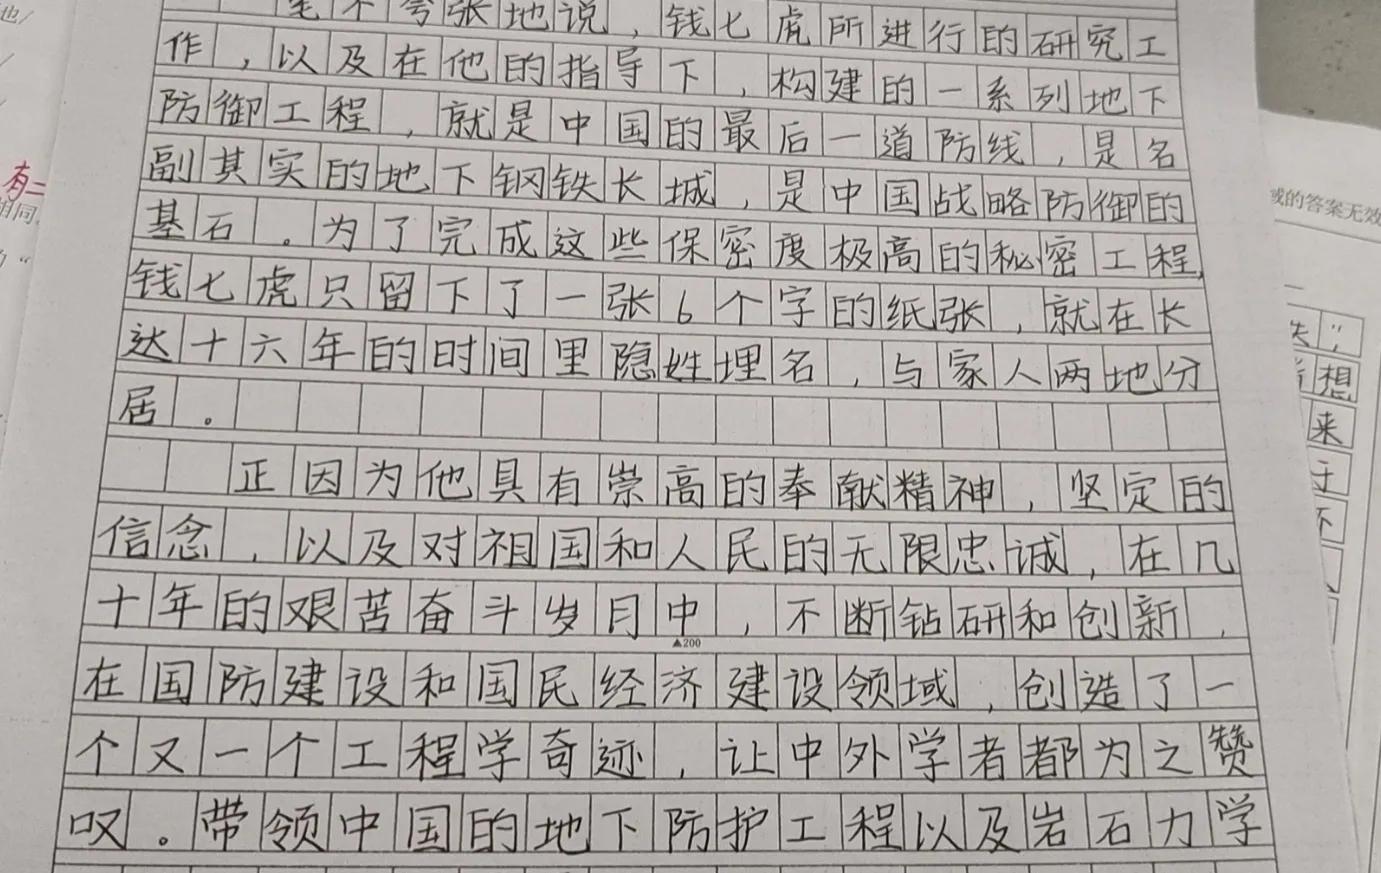 毫不夸张地说，钱七虎所进行的研究工
作，以及在他的指导下，构建的一系列地下
防御工程，就是中国的最后一道防线，是名
副其实的地下钢铁长城，是中国战略防御的
基石。为了完成这些保密度极高的秘密工程，
钱七虎只留下了一张6个字的纸张，就在长
达十六年的时间里隐姓埋名，与家人两地分
居。
正因为他具有崇高的奉献精神，坚定的
信念，以及对祖国和人民的无限忠诚，在几
十年的艰苦奋斗岁月中，不断钻研和创新，
▲200
在国防建设和国民经济建设领域，创造了一
个又一个工程学奇迹，让中外学者都为之赞
叹。带领中国的地下防护工程以及岩石力学
有二
相同
的答案无效
"
想
来